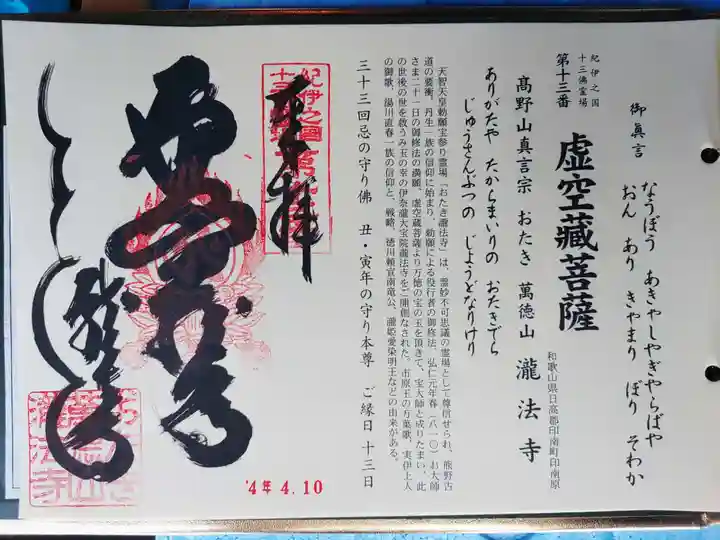 御真言
なうぼう あきゃしやぎやらばや
おん あり きゃまり ぼり そわか
紀伊之国
十三佛霊場
第十三番 虚空藏菩薩
和歌山県日高郡印南町印南原
高野山真言宗 おたき 萬徳山 瀧法寺
ありがたや たからまいりの おたきでら
じゅうさんぶつの じょうどなりけり
天智天皇勅願宝参り霊場「おたき瀧法寺」は、霊妙不可思議の霊場として尊信せられ、熊野古
道の要衝、丹生一族の信仰に始まり、勅願による役行者の御修法、弘仁元年春(八一〇)お大師
さま二十一日の御修法の満願、虚空蔵菩薩より万徳の宝の玉を頂きて、宝大師と成りたまい、此
の世後の世を救うみ玉の幸の伊奈瀧大宝院瀧法寺をご開創なされた。市原王の万葉歌、実伊上人
の御歌、湯川直春一族の信仰と、戦略、徳川頼宣南竜公、瀧姫愛染明王などの由来がある。
三十三回忌の守り佛 丑・寅年の守り本尊 ご縁日 十三日
奉拝
'4年 4.10